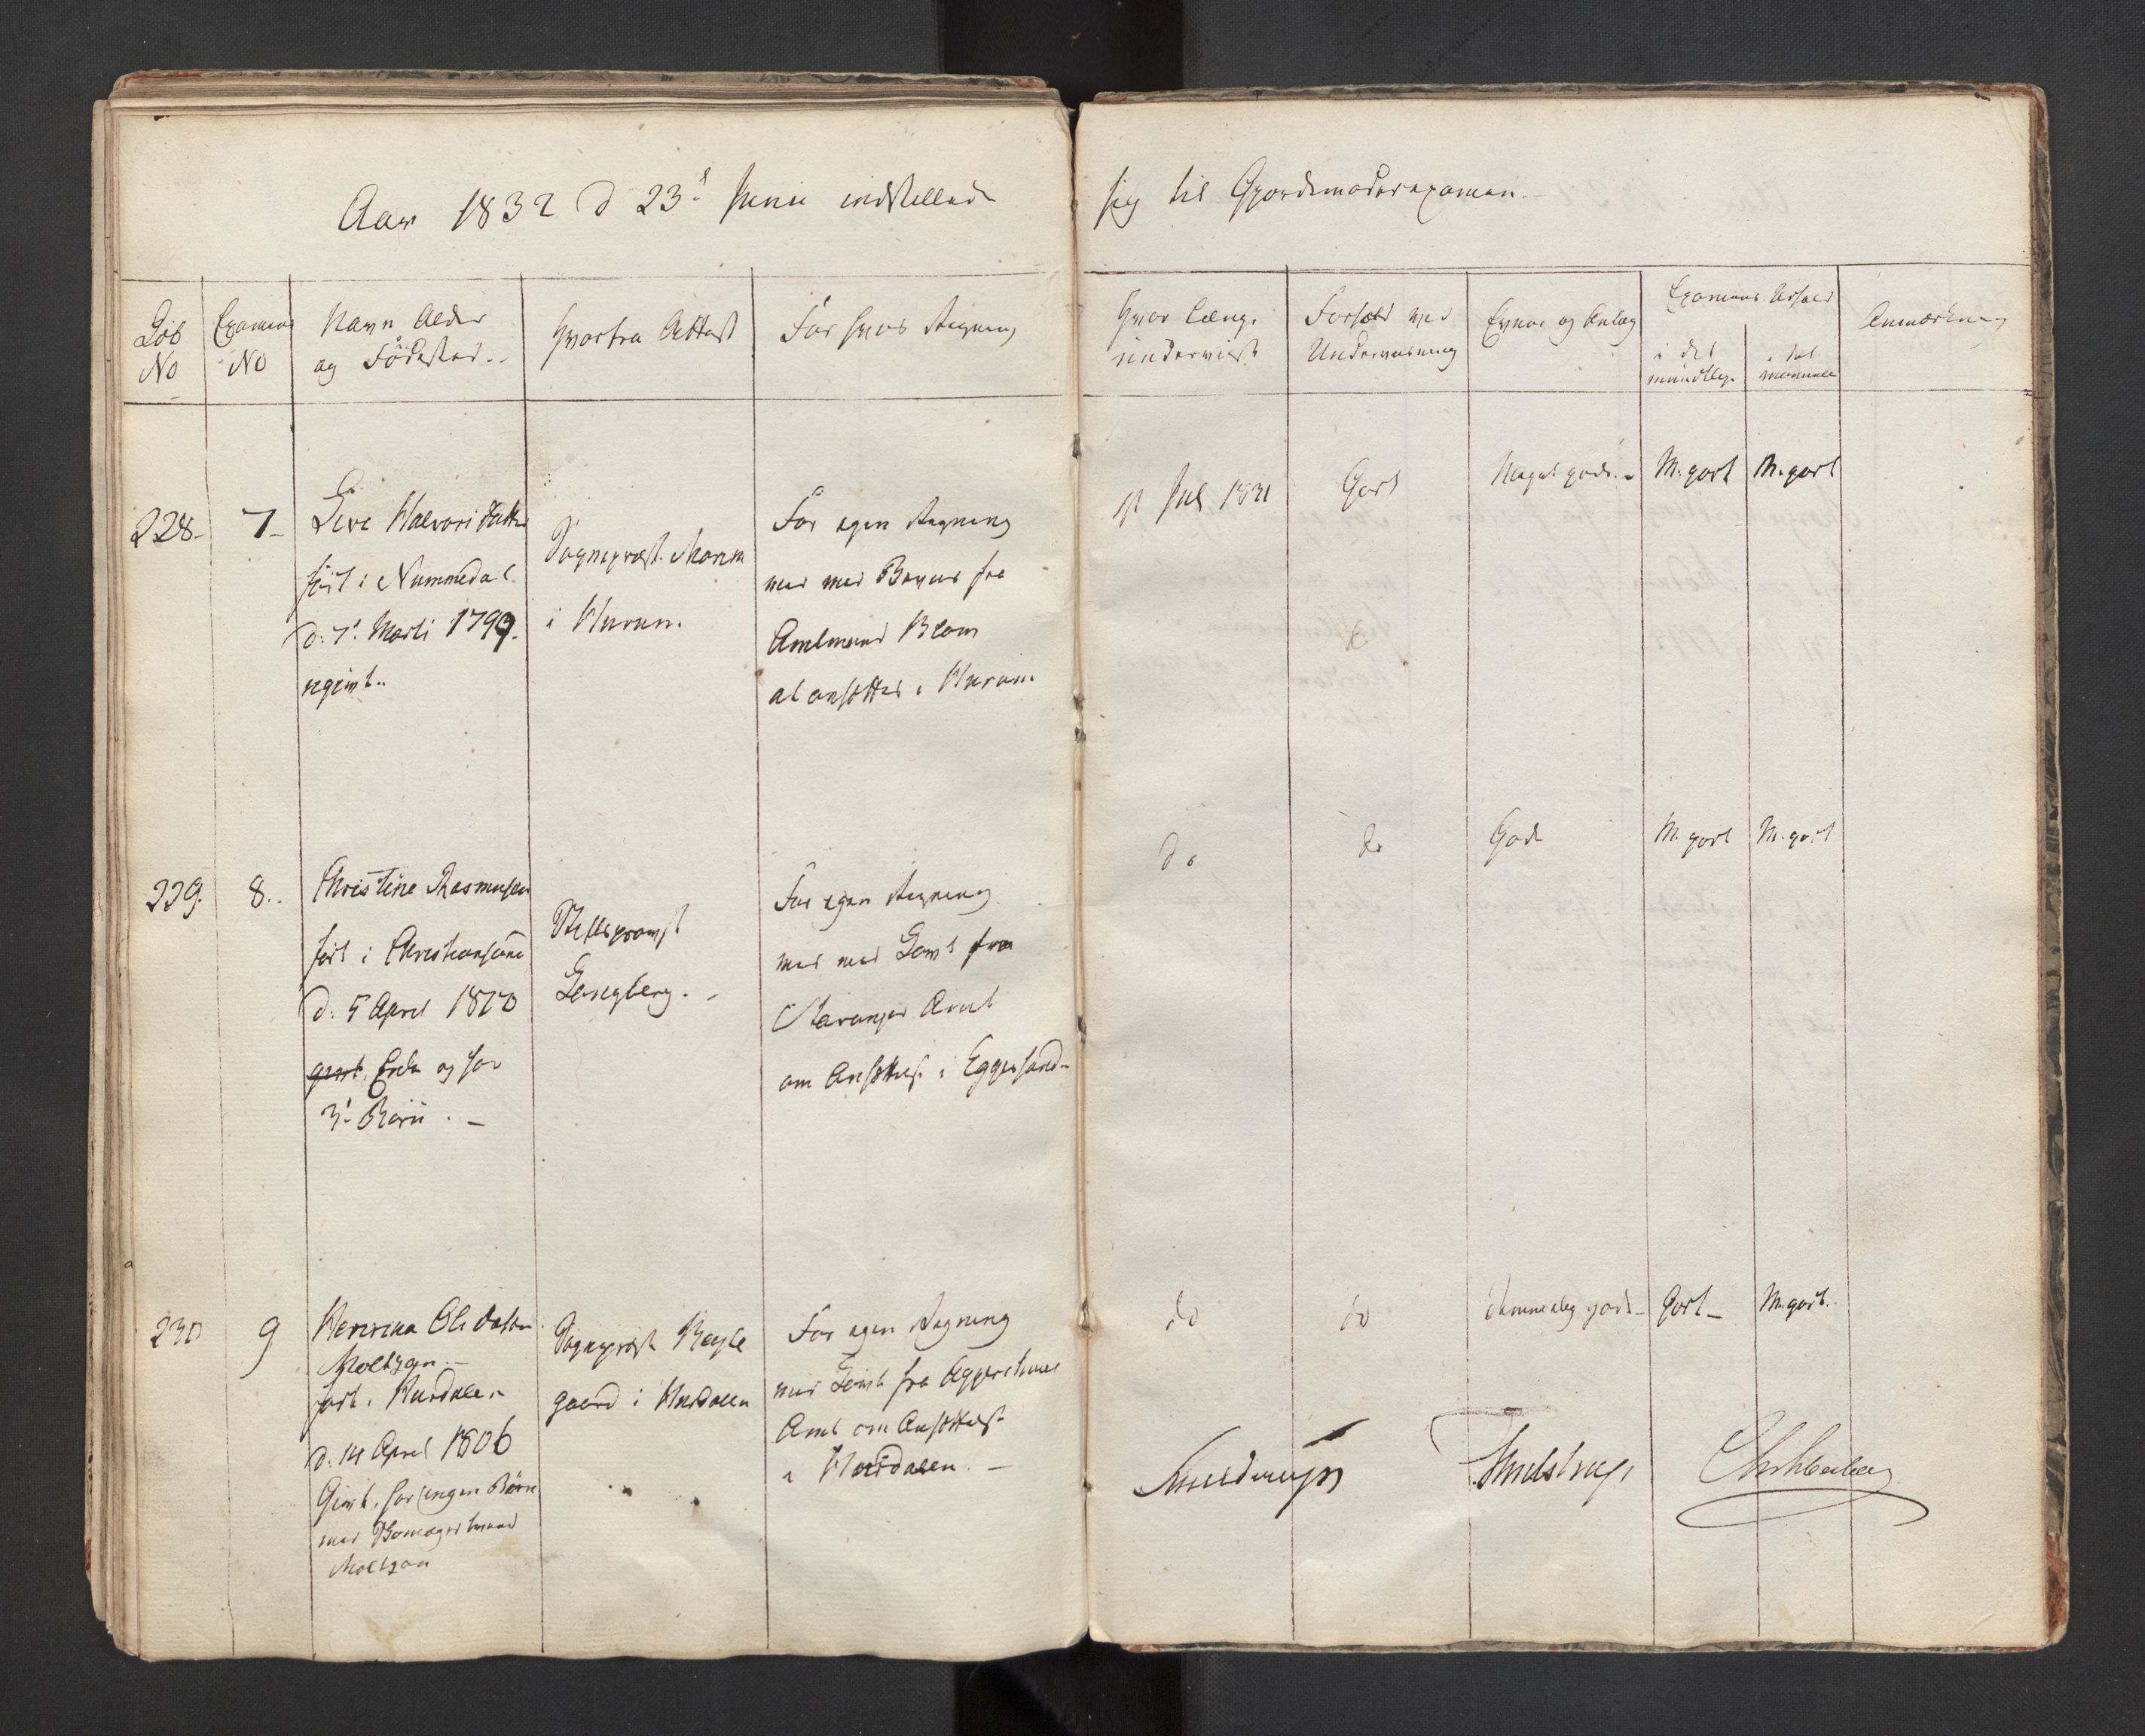 Aar 1832 d 23de Junii indstillede
sig til Gjordemoderexamen.
Löb
No
Examens
No
Navn Alder
og Födested..
Hvorfra Attest
For hvis Regning
Hvor længe
underviist
Forhold ved
Underviisning
Evner og Anlæg
Examens Udfald
i det
mundtlige
i det
manuale
Anmærkning
228-
7-
Live Halvorsdatter
föt i Nummedal
d: 7de Marti 1799.
ugivt..
Sogneprest
i Hurum.
For egen Regning
men med Beviis fra
Amtmand Blom
at ansættes i Hurum.
Jul 1831
Godt
Meget gode.-
M. godt
M. godt
229.
8..
Christine Rasmusen
föt i Christiansand
d: 5 April 1820
givt, Enke og har
3de Börn . -
Stiftsprovst
Langberg. -
For egen Regning
men med Löwte fra
Stavanger Amt
om Ansættelse i Eggersund-
do
do
Gode
M. godt
M. godt
230
9
Olsdatter
Moltzau.-
föt i Hurdalen
d. 14 April 1806
Givt, har ingen Börn
med
Moltzau
Sogneprest
gaard i Hurdalen
For egen Regning
med Löwte fra Aggershuus
Amt om Ansættelse
i Hurdalen. -
do
do
Temmelig gode-
Godt-
M. godt.